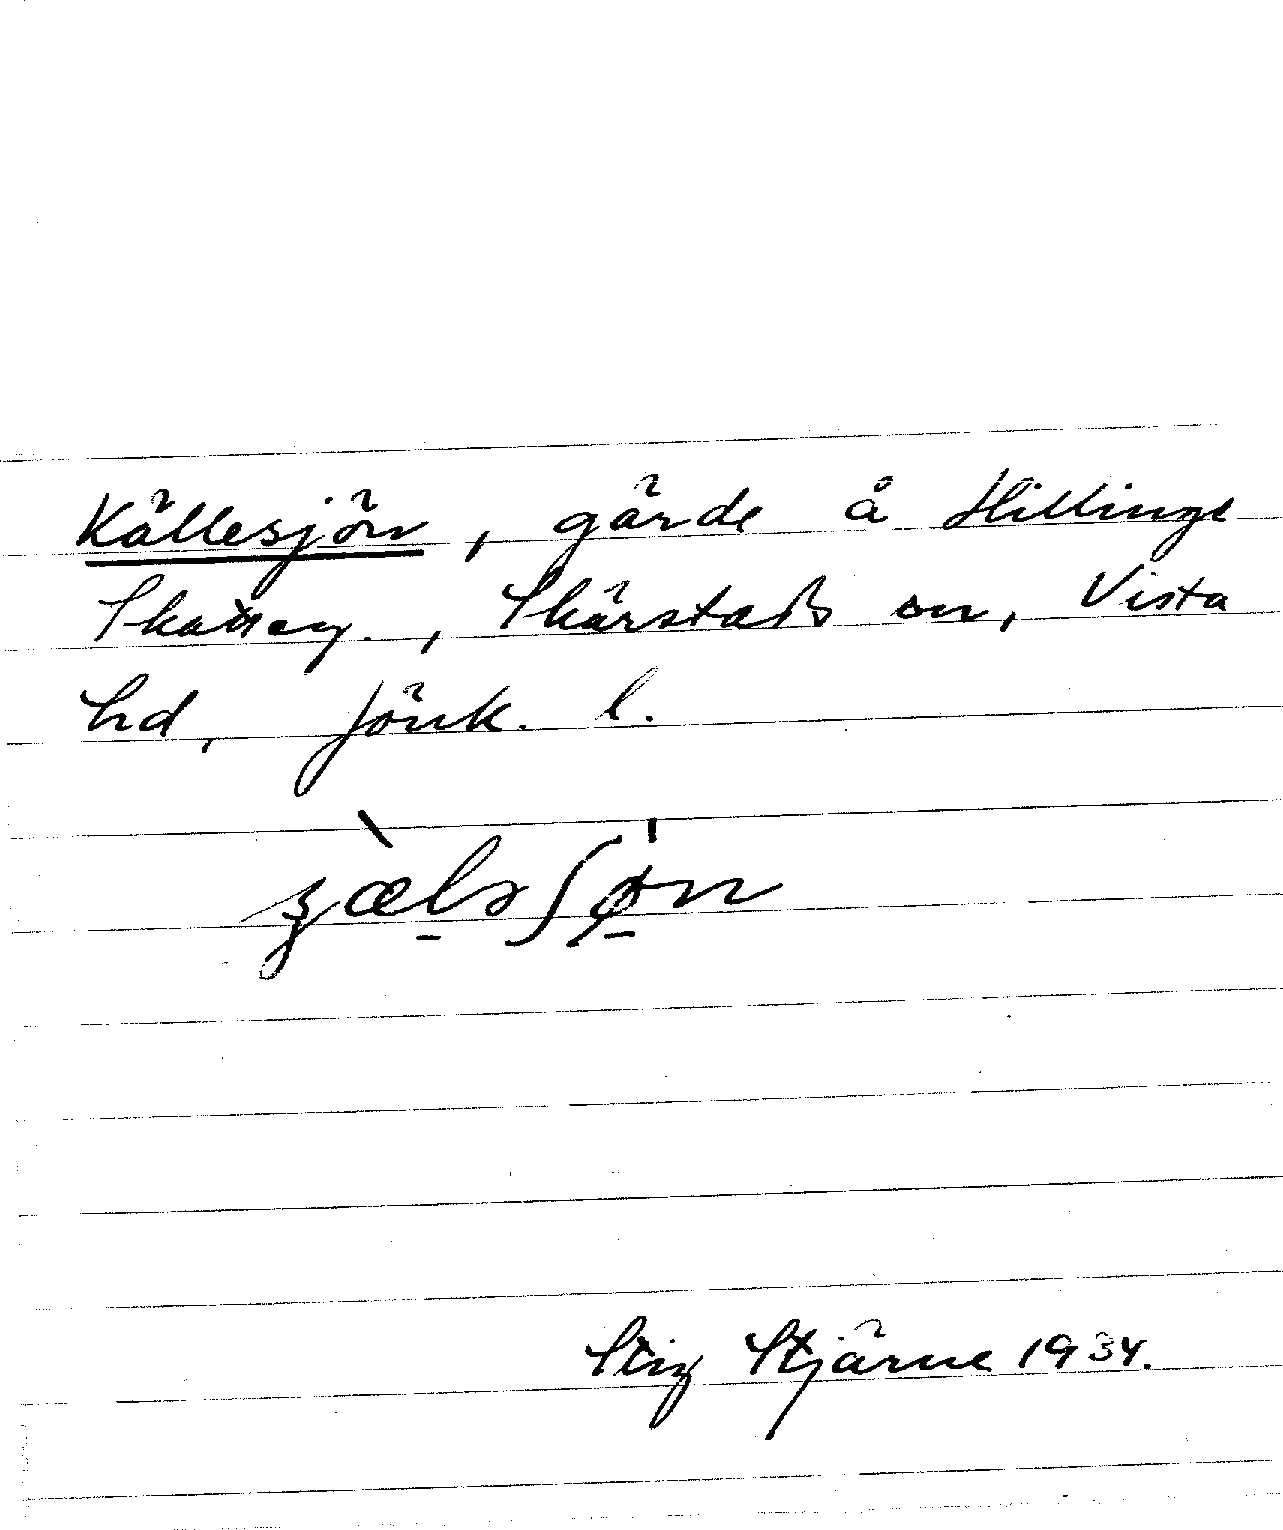 Källesjön, gärde å Hillinge
Skatteg., Skärstads sn, Vista
hd, Jönk. l.
Stig Stjärne 1934.